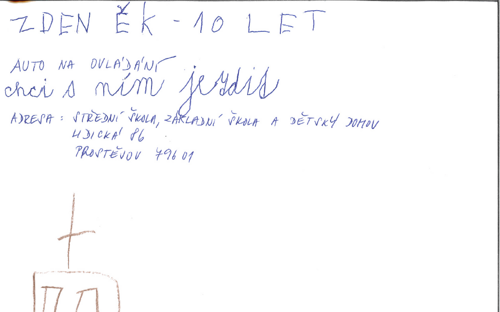 ZDENĚK - 10 LET
AUTO NA OVLÁDÁNÍ
chci s ním jezdit
ADRESA: STŘEDNÍ ŠKOLA, ZÁKLADNÍ ŠKOLA A DĚTSKÝ DOMOV
LIDICKÁ 86
PROSTĚJOV 79601